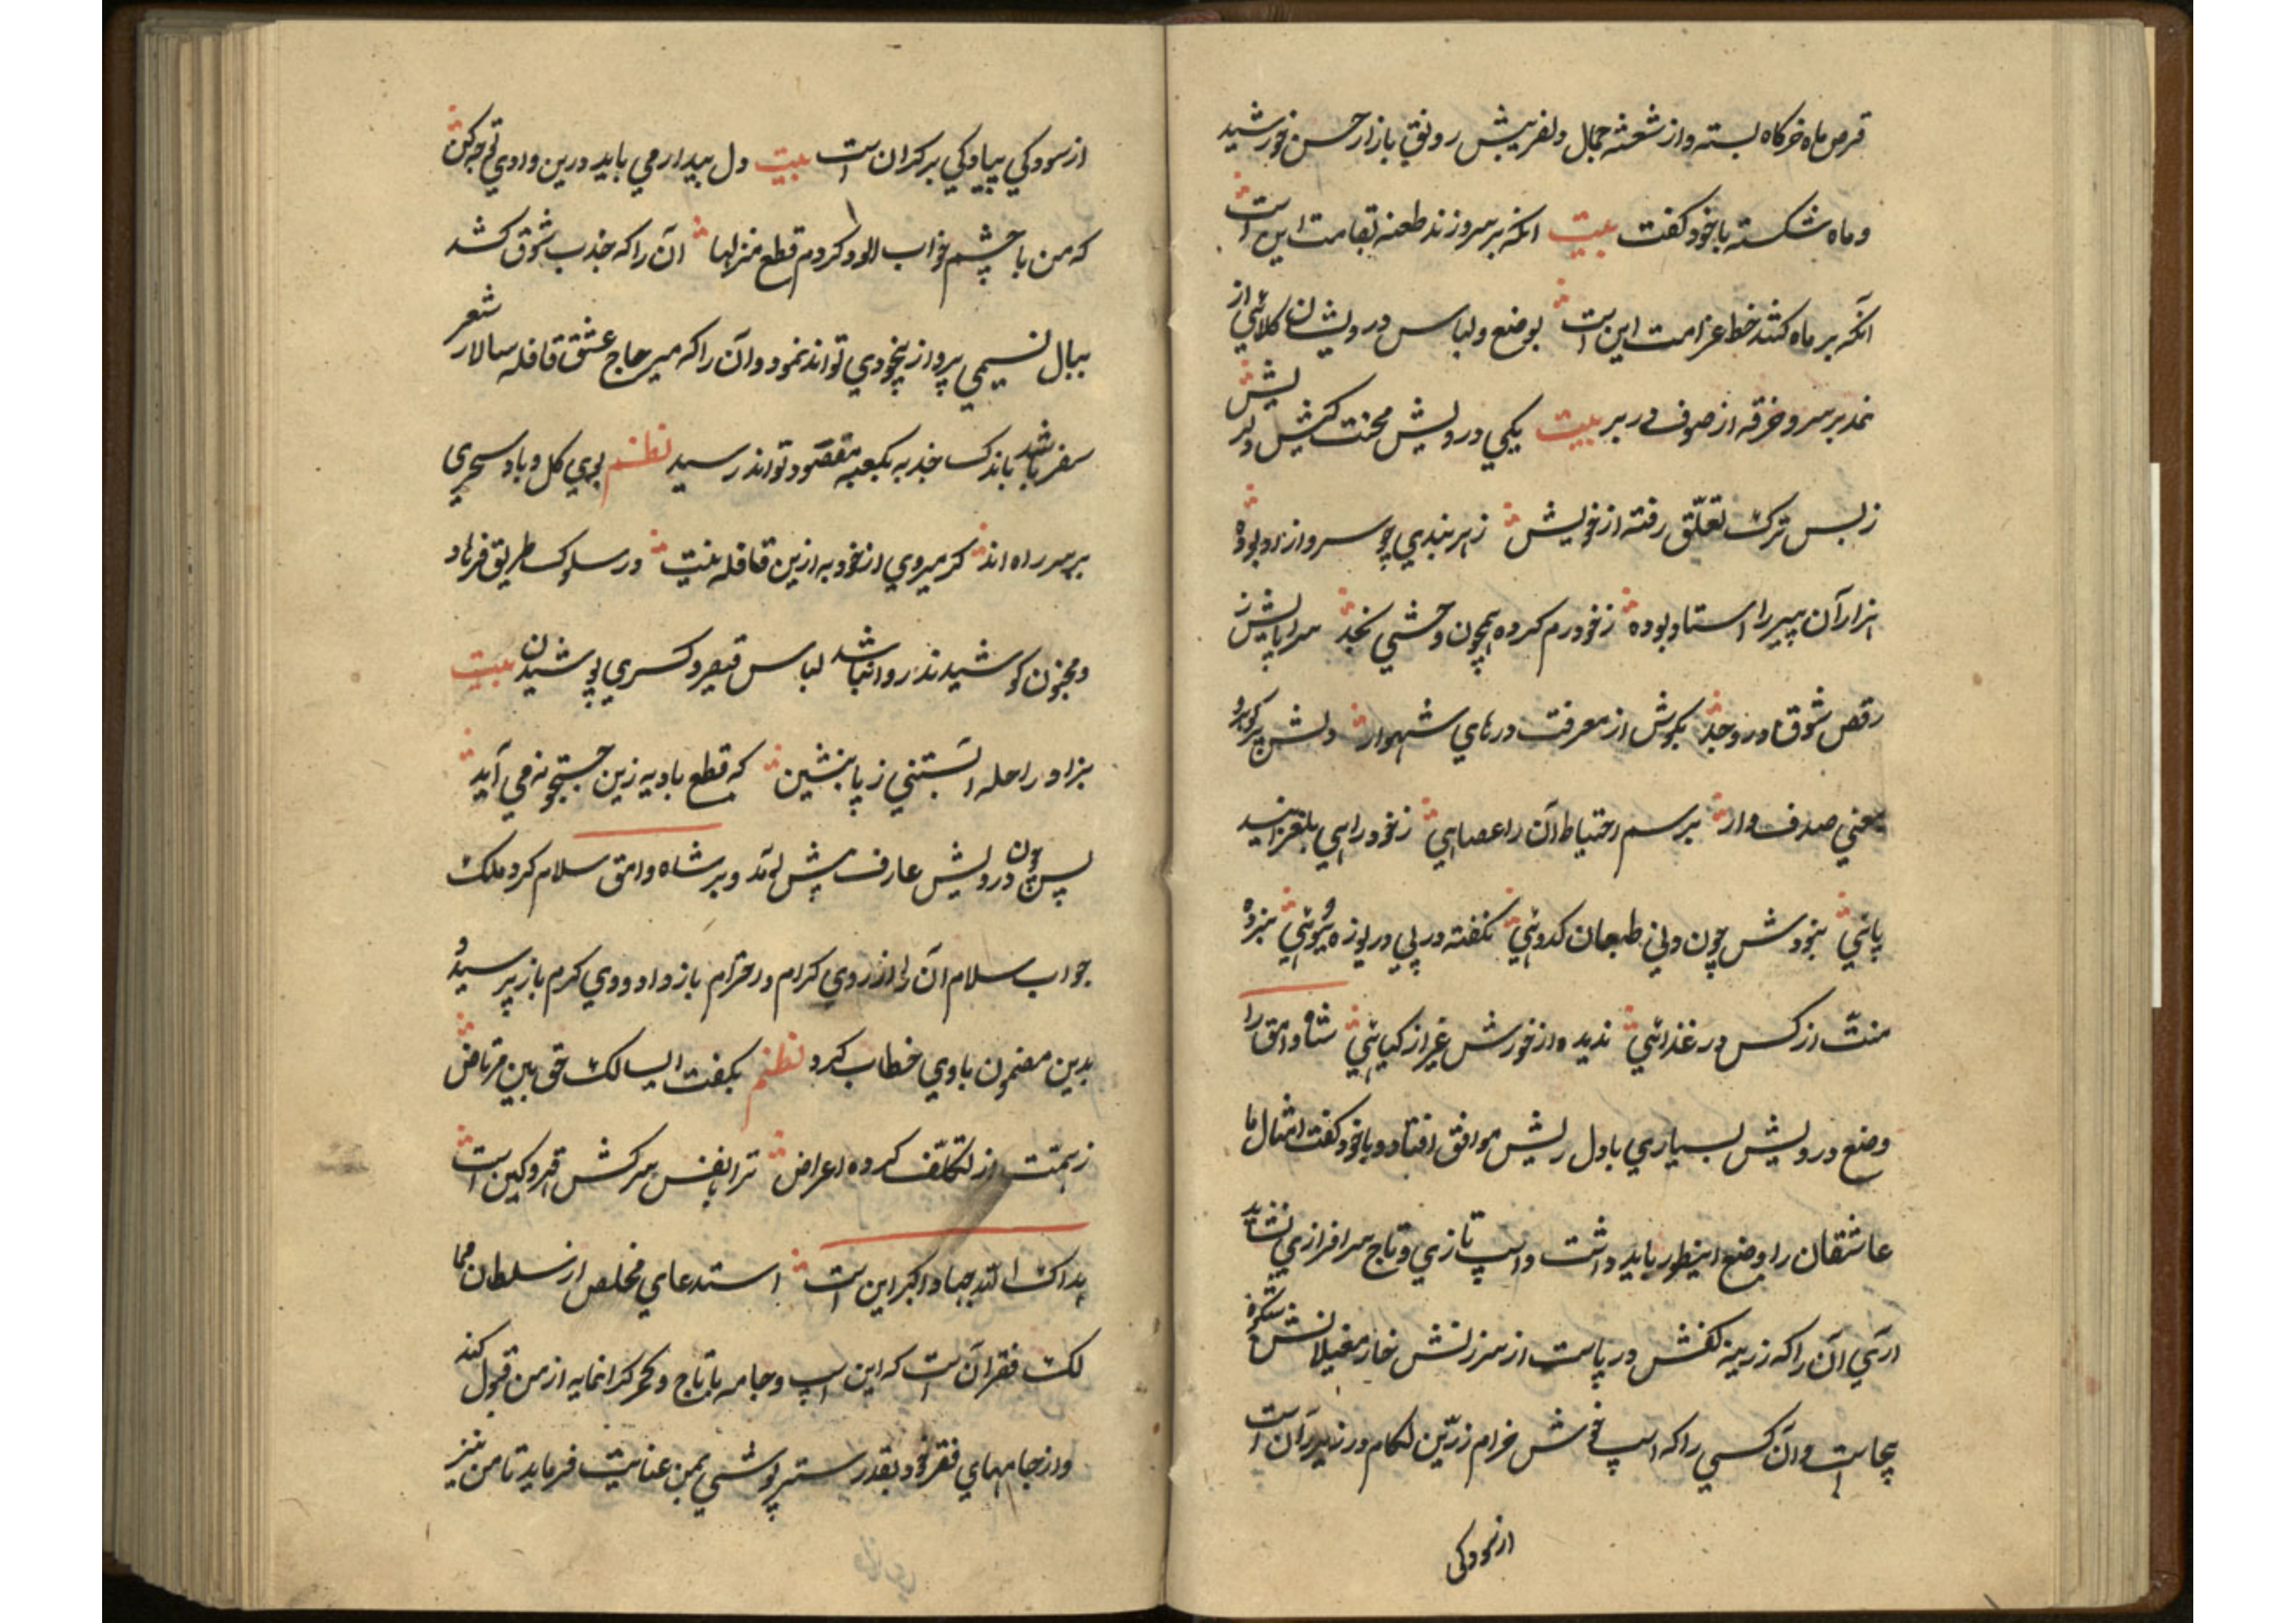 قرص ماه خرکاه بسته و از شعشهٔ جمال دلفریبش رونق بازار حسن خورشید
و ماه شکسته با خود کفت بیت انکه بر سرو زند طعنه بقامت این است
آنکه بر ماه کشد خط غرامت این است بوضع و لباس درویشان کلاهی از
نمد بر سر و خرقه از صوف در بر بیت یکی درویش محنت کیش دلریش
ز بس ترک تعلّق رفته از خویش ز هر بندی چو سرو ازاد بوده
هزار آن پیر را استاد بوده ز خود رم کرده همچون وحشی نجد سراپایش ز
رقص شوق در وجد بکوش از معرفت درهای شهوار دلش پر کوهر
معنی صدف وار برسم احتیاط آن را عصایی ز خود راهی بلغزانید
پائی بنودش چون دنی طبعان کدوئی نکفته در پی دریوزه هوئی نبرده
منت از کس در غذائی ندیده از خورش غیر از کیائی شاه وامق را
وضع درویش بسیاری با دل ریش موافق افتاد و با خود کفت امثال ما
عاشقان را وضع اینطور باید داشت و اسپ تازی و تاج سرافرازی نشاید
آری آن را که زرینه کفش در پاست از سرزنش خار مغیلانش شکوه
بیجاست و آن کسی را که اسپ خوش خرام زرّین لکام در زیر ران است
از سودکی
از سودکی پیادکی برکران است بیت دل بیدار می باید درین وادی توجه کن
که من با چشم خواب الود کردم قطع منزلها آن را که جذب شوق کشد
ببال نسیمی پرواز بیخودی تواند نمود و آن را که میر حاج عشق قافله سالار شعر
سفر باشد باندک جذبه بکعبه مقصود تواند رسید نظم بوی کل و باد سحری
بر سر راه اند کر میروی از خود به ازین قافله نیست در سلوک طریق فرهاد
و مجنون کوشیدند روا نباشد لباس قیصر و کسری پوشیدن بیت
بزاد و راحله بستنی ز پا بنشین که قطع بادیه زین جستجو نمی آید
پس چون درویش عارف پیش آمد و بر شاه وامق سلام کرد ملک
جواب سلام آن را از روی کرام و احترام باز داد و وی کرم باز پرسید و
بدین مضمون با وی خطاب کرد نظم بکفت ای سالک حق بین مرتاض
ز همّت از تکلّف کرده اعراض ترا با نفس سرکش قهر و کین است
بداک الله جهاد اکبر این است استدعای مخلص از سلطان مما
لک فقر آن است که این اسپ و جامه با تاج و کمر کرانمایه از من قبول کند
و از جامهای فقر خود بقدر ستر پوشی بمن عنایت فرماید تا من نیز